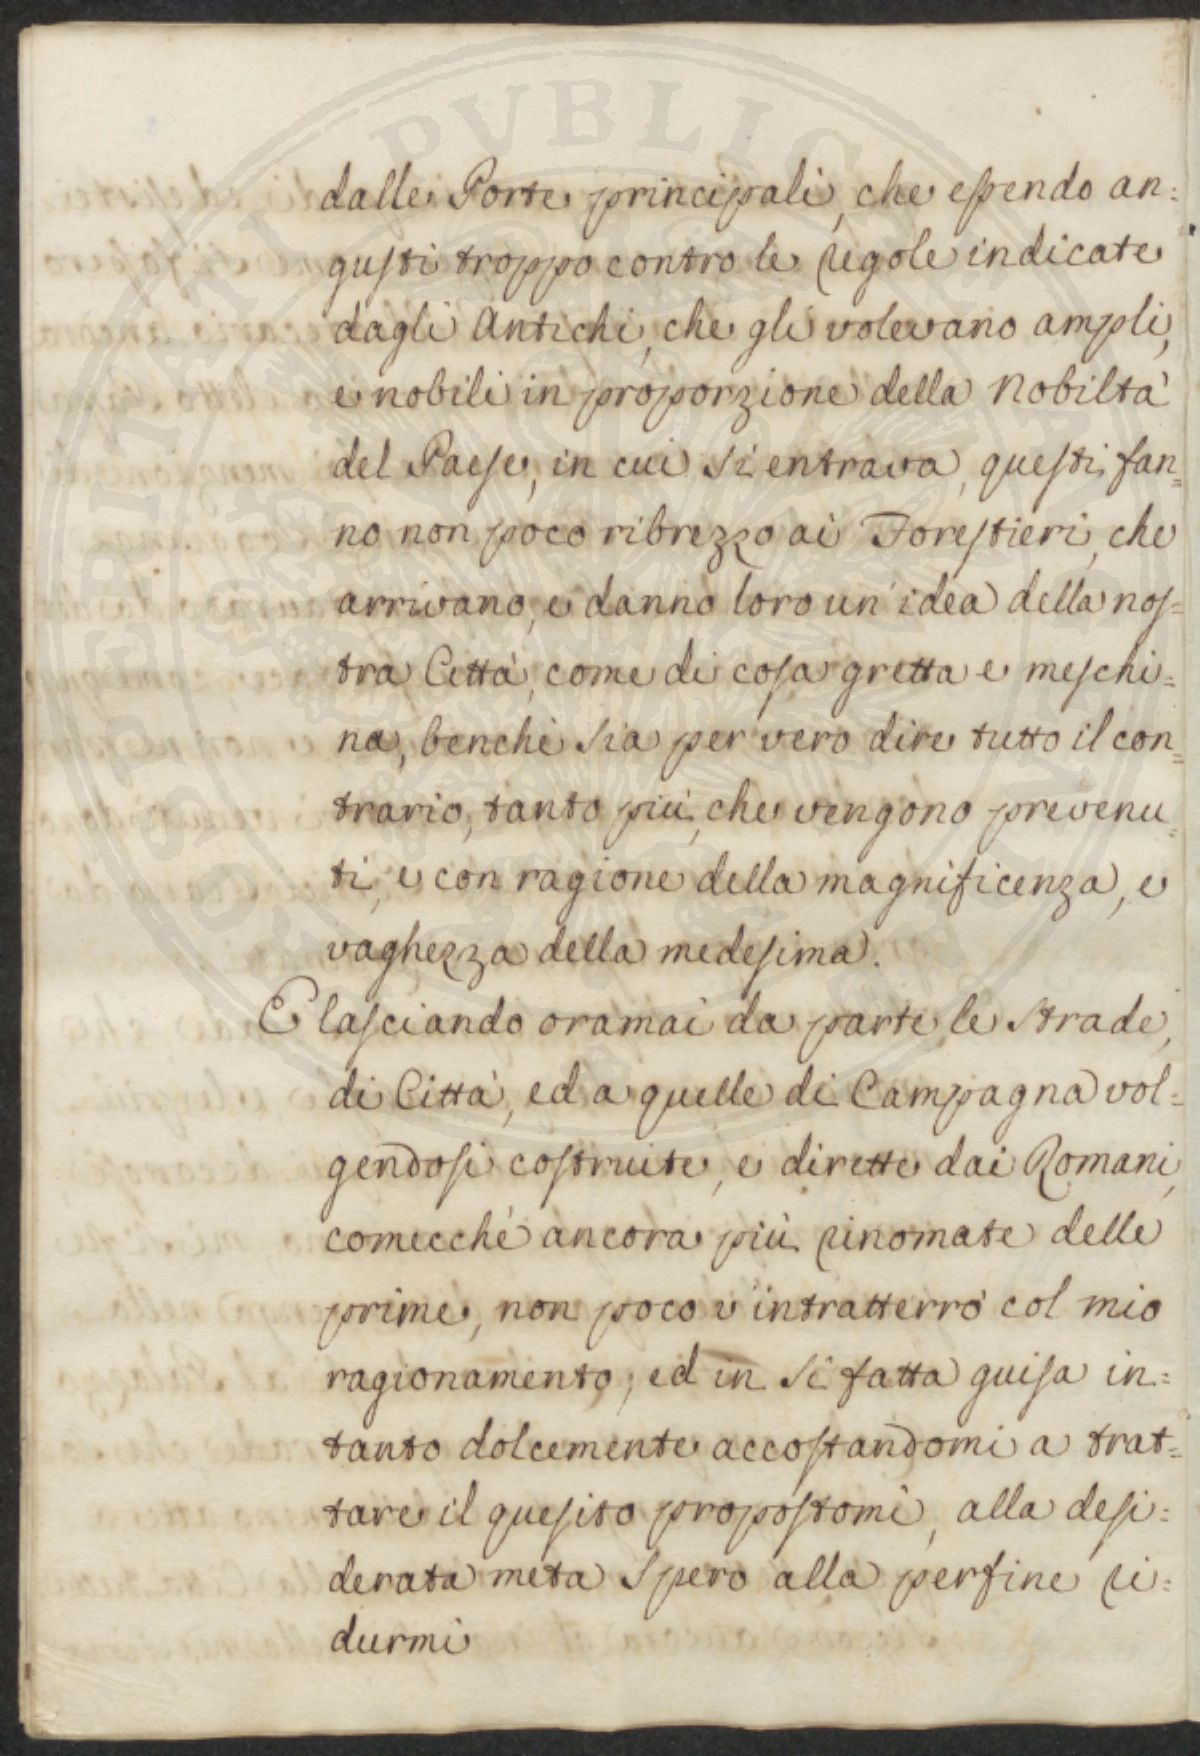 dalle Porte principali, che essendo an=
gusti troppo contro le regole indicate
dagli Antichi, che gli volevano ampli,
e nobili in proporzione della Nobiltà
del Paese, in cui si entrava, questi fan=
no non poco ribrezzo ai Forestieri, che
arrivano, e danno loro un'idea della nos=
tra Città, come di cosa gretta e meschi=
na, benchè sia per vero dire tutto il con=
trario, tanto più, che vengono prevenu=
ti, e con ragione della magnificenza, e
vaghezza della medesima.
E lasciando oramai da parte le Strade,
di Città, ed a quelle di Campagna vol=
gendosi costruite, e dirette dai Romani,
comecchè ancora più rinomate delle
prime, non poco v'intratterrò col mio
ragionamento, ed in si fatta guisa in=
tanto dolcemente accostandomi a trat=
tare il quesito propostomi, alla desi=
derata meta spero alla perfine ri=
durmi